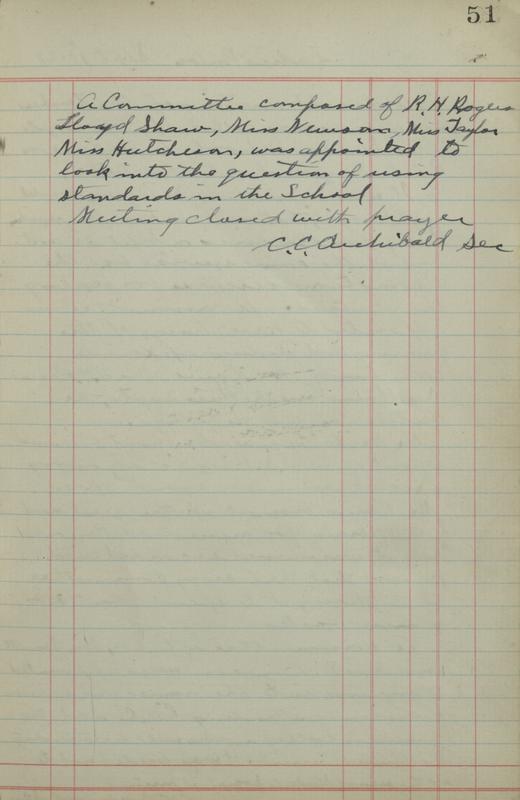 51
A Committee composed of R. H. Rogers
Lloyd Shaw, Miss Newsom, Miss Taylor
Miss Hutcheson, was appointed to
look into the question of using
standards in the School
Meeting closed with prayer
C. C. Archibald Sec